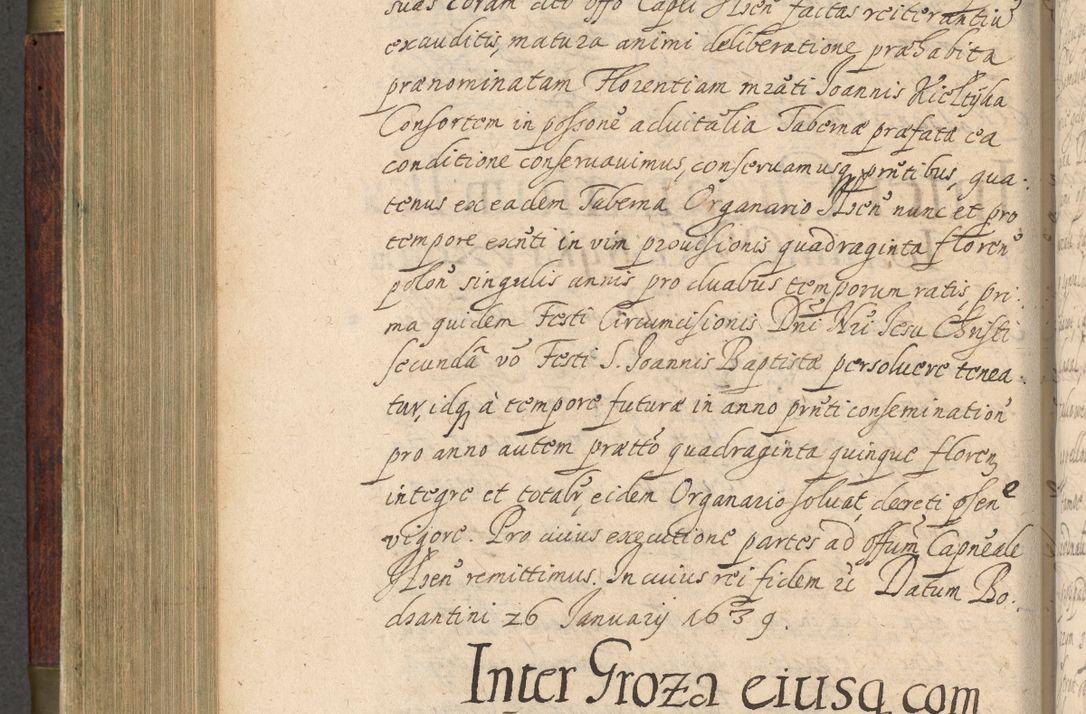 suas coram dicto offo Capli Ilsen̄ factas reiterantiū
exauditis, matura animi deliberatione præhabita
prænominatam Florentiam mrāti Joannis Kieltyka
Consortem in possone aduitalia Tabernæ præfatæ ea
conditione conseruauimus, conseruamusq, prn̄tibus, qua-
tenus ex eadem Taberna Organario Ilsen̄ nunc et pro
tempore exn̄ti in vim prouisionis quadraginta floren̄
polon̄ singulis annis pro duabus temporum ratis, pri-
ma quidem Festi Circumcisionis Dn̄i Nr̄i Jesu Christi
secundā vō Festi S. Joannis Baptistæ persoluere tenea-
tur, idq, à tempore futuræ in anno prn̄ti consemination̄
pro anno autem prætto quadraginta quinque floren
integre et totalr̄, eidem Organario soluat, decreti pn̄sen
vigore. Pro cuius executione partes ad offum Capneale
Ilsen̄ remittimus. In cuius rei fidem &c̄ Datum Bo-
dzantini 26 Januarij 1639.
Inter Groza eiusq com